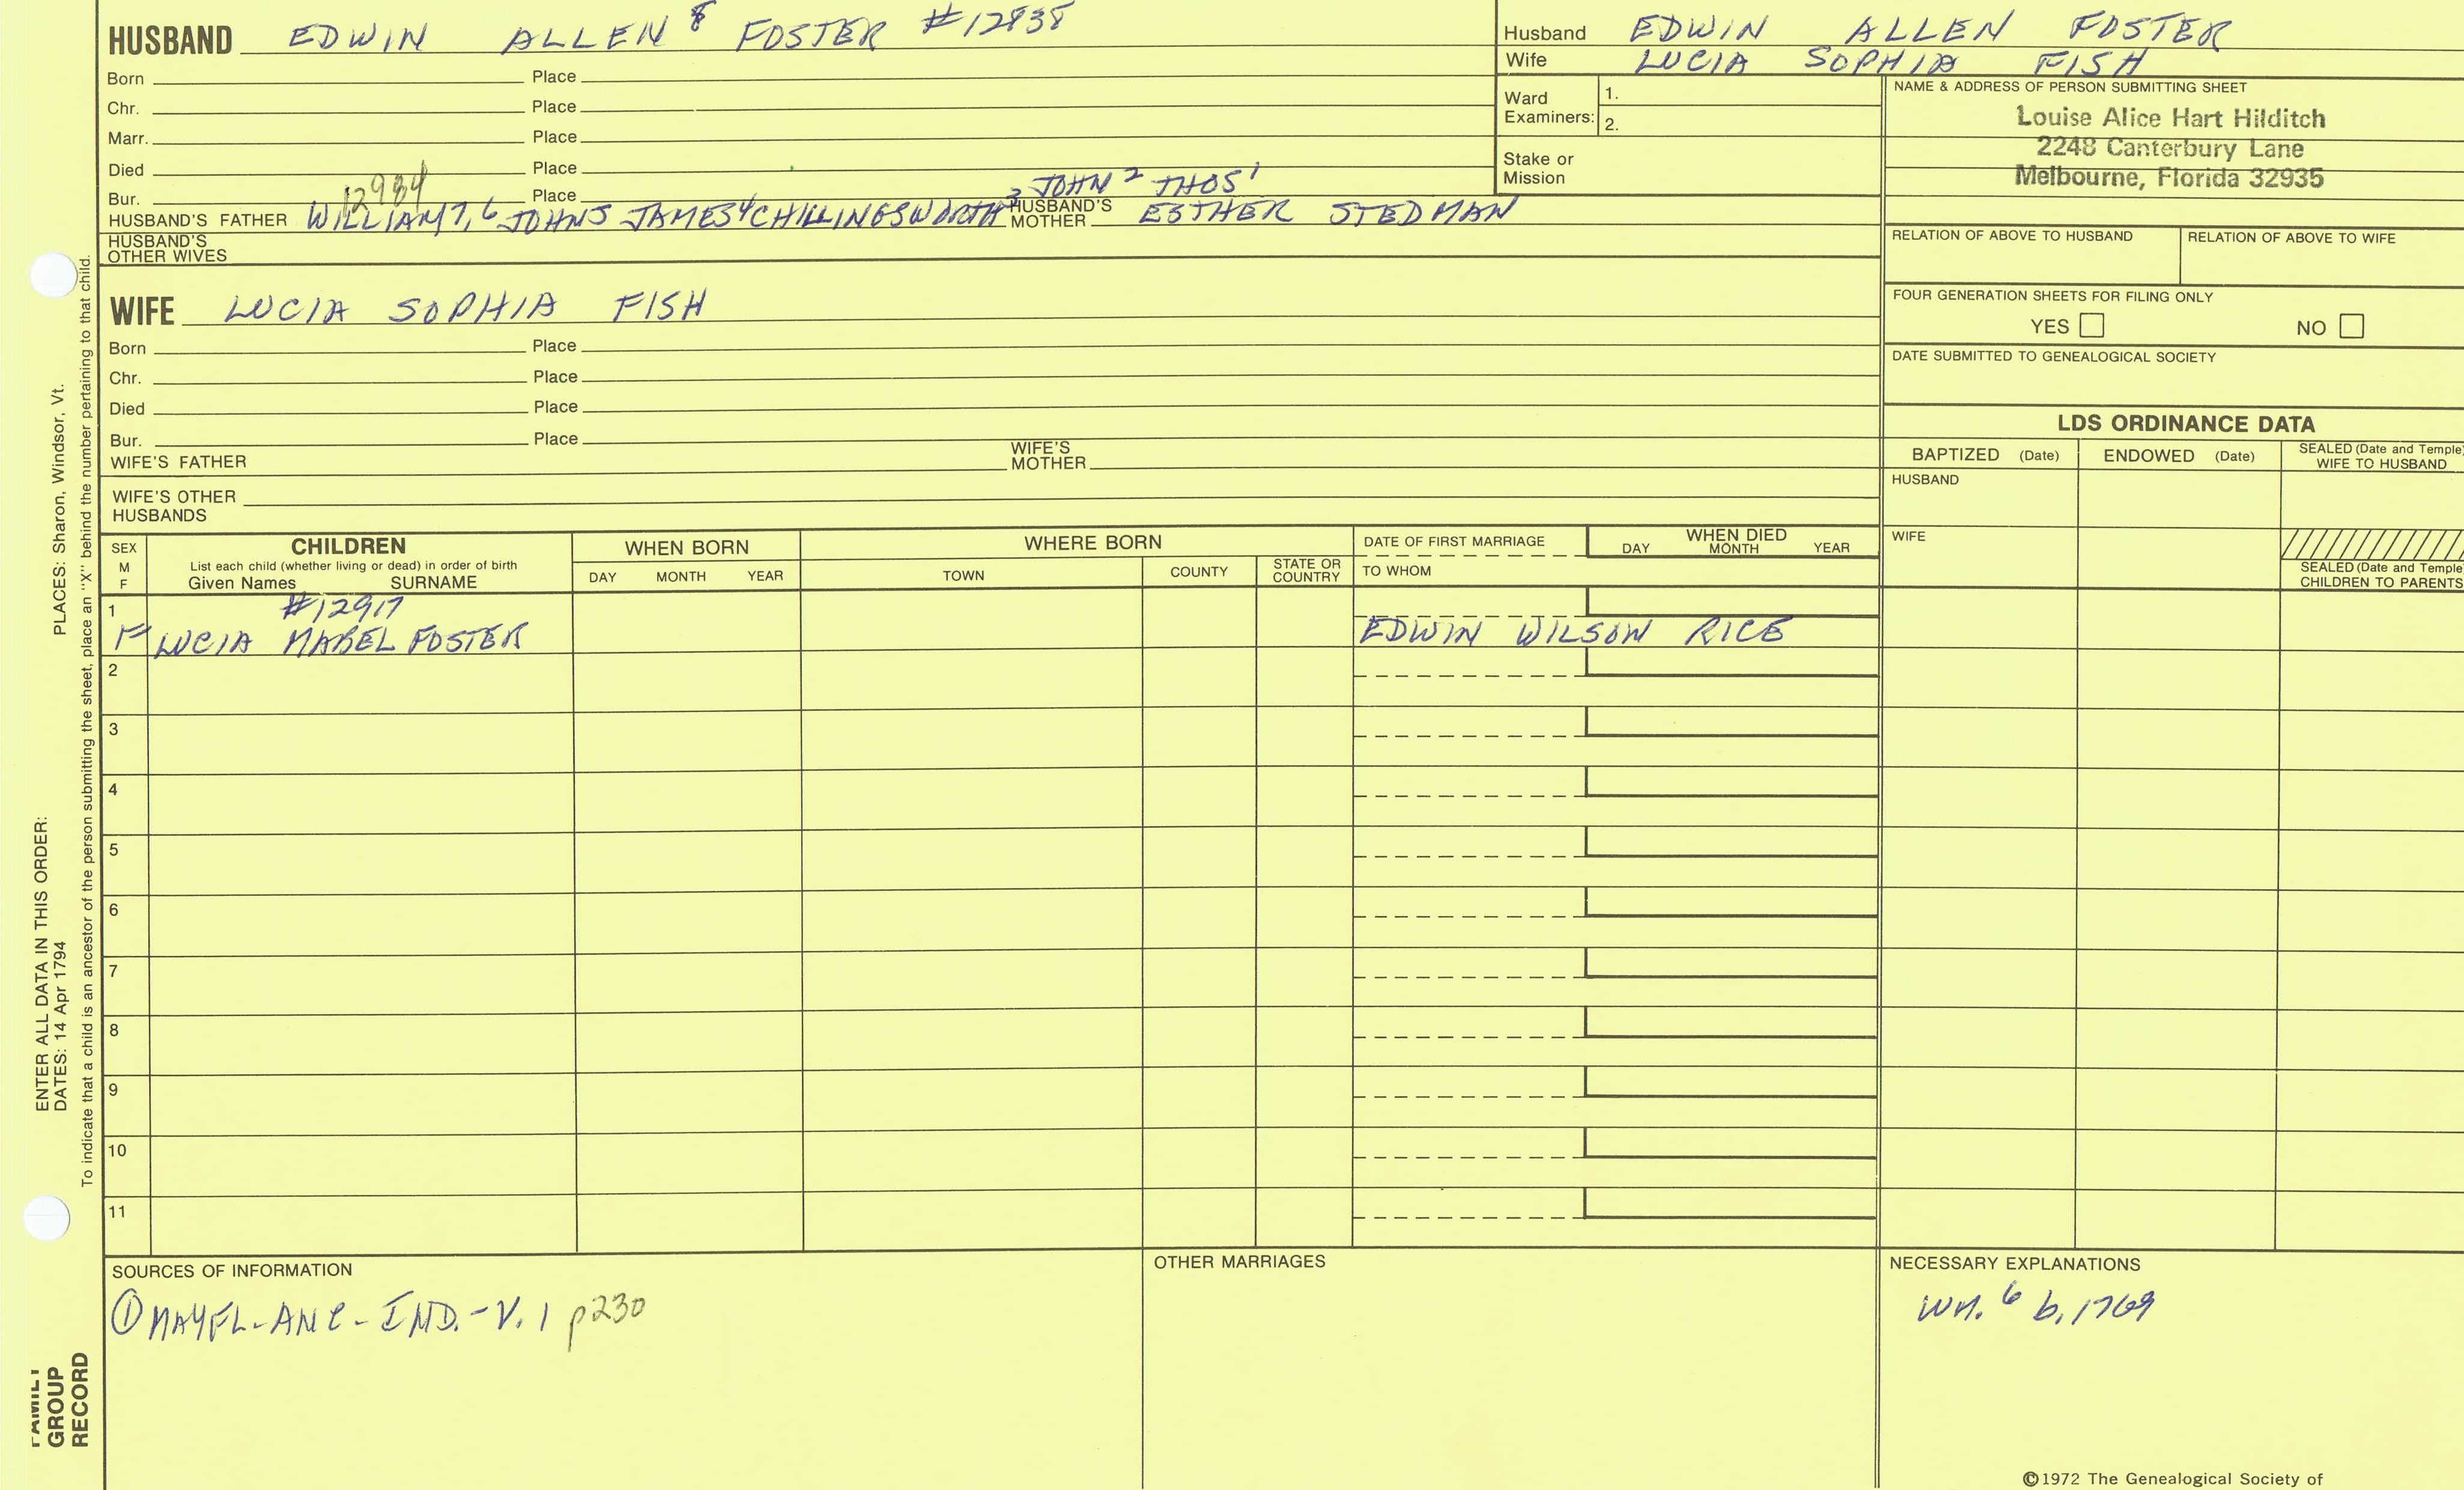 HUSBAND EDWIN ALLEN 8 FOSTER #12838
Born Place
Chr. Place
Marr. Place
Died Place
12984
Bur. Place
3 JOHN 2 THOS 1
HUSBAND'S FATHER WILLIAM 7, 6 JOHN 5 JAMES 4 CHILLINGSWORTH HUSBAND'S MOTHER ESTHER STEDMAN
HUSBAND'S OTHER WIVES
WIFE LUCIA SOPHIA FISH
Born Place
Chr. Place
Died Place
Bur. Place
WIFE'S FATHER WIFE'S MOTHER
WIFE'S OTHER HUSBANDS
Husband EDWIN ALLEN FOSTER
Wife LUCIA SOPHIA FISH
Ward Examiners: 1.
2.
Stake or Mission
NAME & ADDRESS OF PERSON SUBMITTING SHEET
Louise Alice Hart Hilditch
2248 Canterbury Lane
Melbourne, Florida 32935
RELATION OF ABOVE TO HUSBAND RELATION OF ABOVE TO WIFE
FOUR GENERATION SHEETS FOR FILING ONLY
YES NO
DATE SUBMITTED TO GENEALOGICAL SOCIETY
LDS ORDINANCE DATA
BAPTIZED (Date) ENDOWED (Date) SEALED (Date and Temple) WIFE TO HUSBAND
HUSBAND
WIFE
SEALED (Date and Temple) CHILDREN TO PARENTS
SEX M F
CHILDREN
List each child (whether living or dead) in order of birth
Given Names SURNAME
WHEN BORN
DAY MONTH YEAR
WHERE BORN
TOWN COUNTY STATE OR COUNTRY
DATE OF FIRST MARRIAGE
TO WHOM
WHEN DIED
DAY MONTH YEAR
1 #12917
F LUCIA MABEL FOSTER EDWIN WILSON RICE
2
3
4
5
6
7
8
9
10
11
SOURCES OF INFORMATION
① MAYFL-ANC-IND.-V.1 p230
OTHER MARRIAGES
NECESSARY EXPLANATIONS
WM. 6 b. 1769
©1972 The Genealogical Society of
PLACES: Sharon, Windsor, Vt.
To indicate that a child is an ancestor of the person submitting the sheet, place an "X" behind the number pertaining to that child.
ENTER ALL DATA IN THIS ORDER:
DATES: 14 Apr 1794
FAMILY
GROUP
RECORD